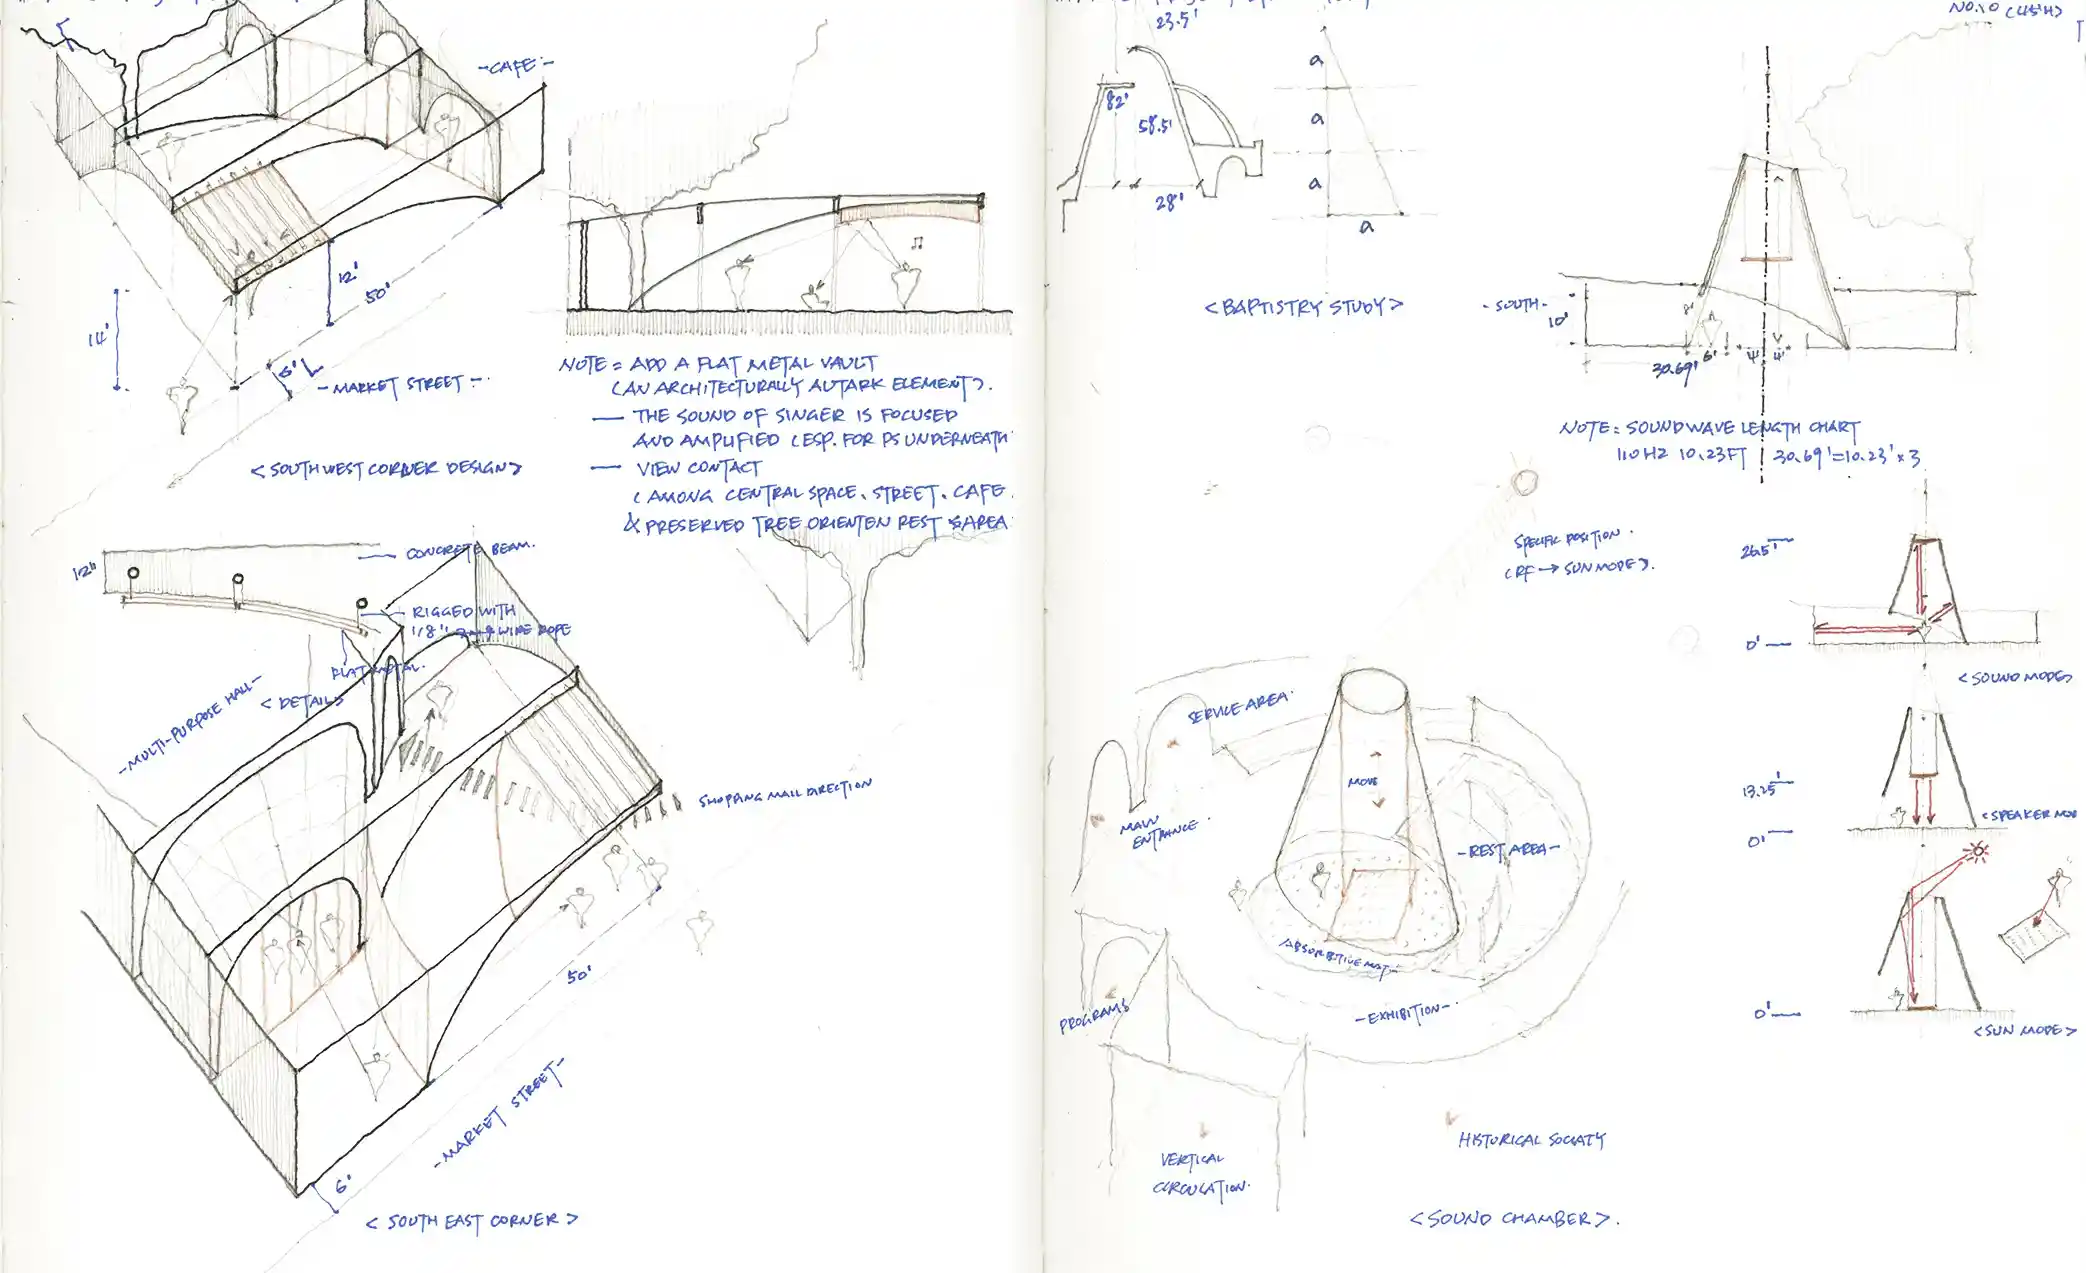 - CAFE -
12'
50'
14'
6'
- MARKET STREET -
< SOUTHWEST CORNER DESIGN >
NOTE = ADD A FLAT METAL VAULT
(AN ARCHITECTURALLY AUTARK ELEMENT).
— THE SOUND OF SINGER IS FOCUSED
AND AMPLIFIED (ESP. FOR PS UNDERNEATH
— VIEW CONTACT
(AMONG CENTRAL SPACE, STREET, CAFE
& PRESERVED TREE ORIENTEN REST AREA
12"
CONCRETE BEAM.
RIGGED WITH
1/8" WIRE ROPE
FLAT METAL.
< DETAIL >
- MULTI-PURPOSE HALL -
SHOPPING MALL DIRECTION
50'
- MARKET STREET -
6'
< SOUTH EAST CORNER >
23.5'
82'
58.5'
28'
a
a
a
a
< BAPTISTRY STUDY >
NO.10 (45'H)
- SOUTH -
10'
8'
30.69'
6'
4'
4'
NOTE: SOUND WAVE LENGTH CHART
110 HZ 10.23FT 30.69'=10.23'×3
SPECIFIC POSITION.
(RF → SUN MODE).
26.5'
0'
< SOUND MODE >
13.25'
0'
< SPEAKER MOD
0'
< SUN MODE >
SERVICE AREA.
MAIN
ENTRANCE.
MOVE
- REST AREA -
ABSORBTIVE MAT.
- EXHIBITION -
PROGRAMS
HISTORICAL SOCIATY
VERTICAL
CIRCULATION.
< SOUND CHAMBER >.